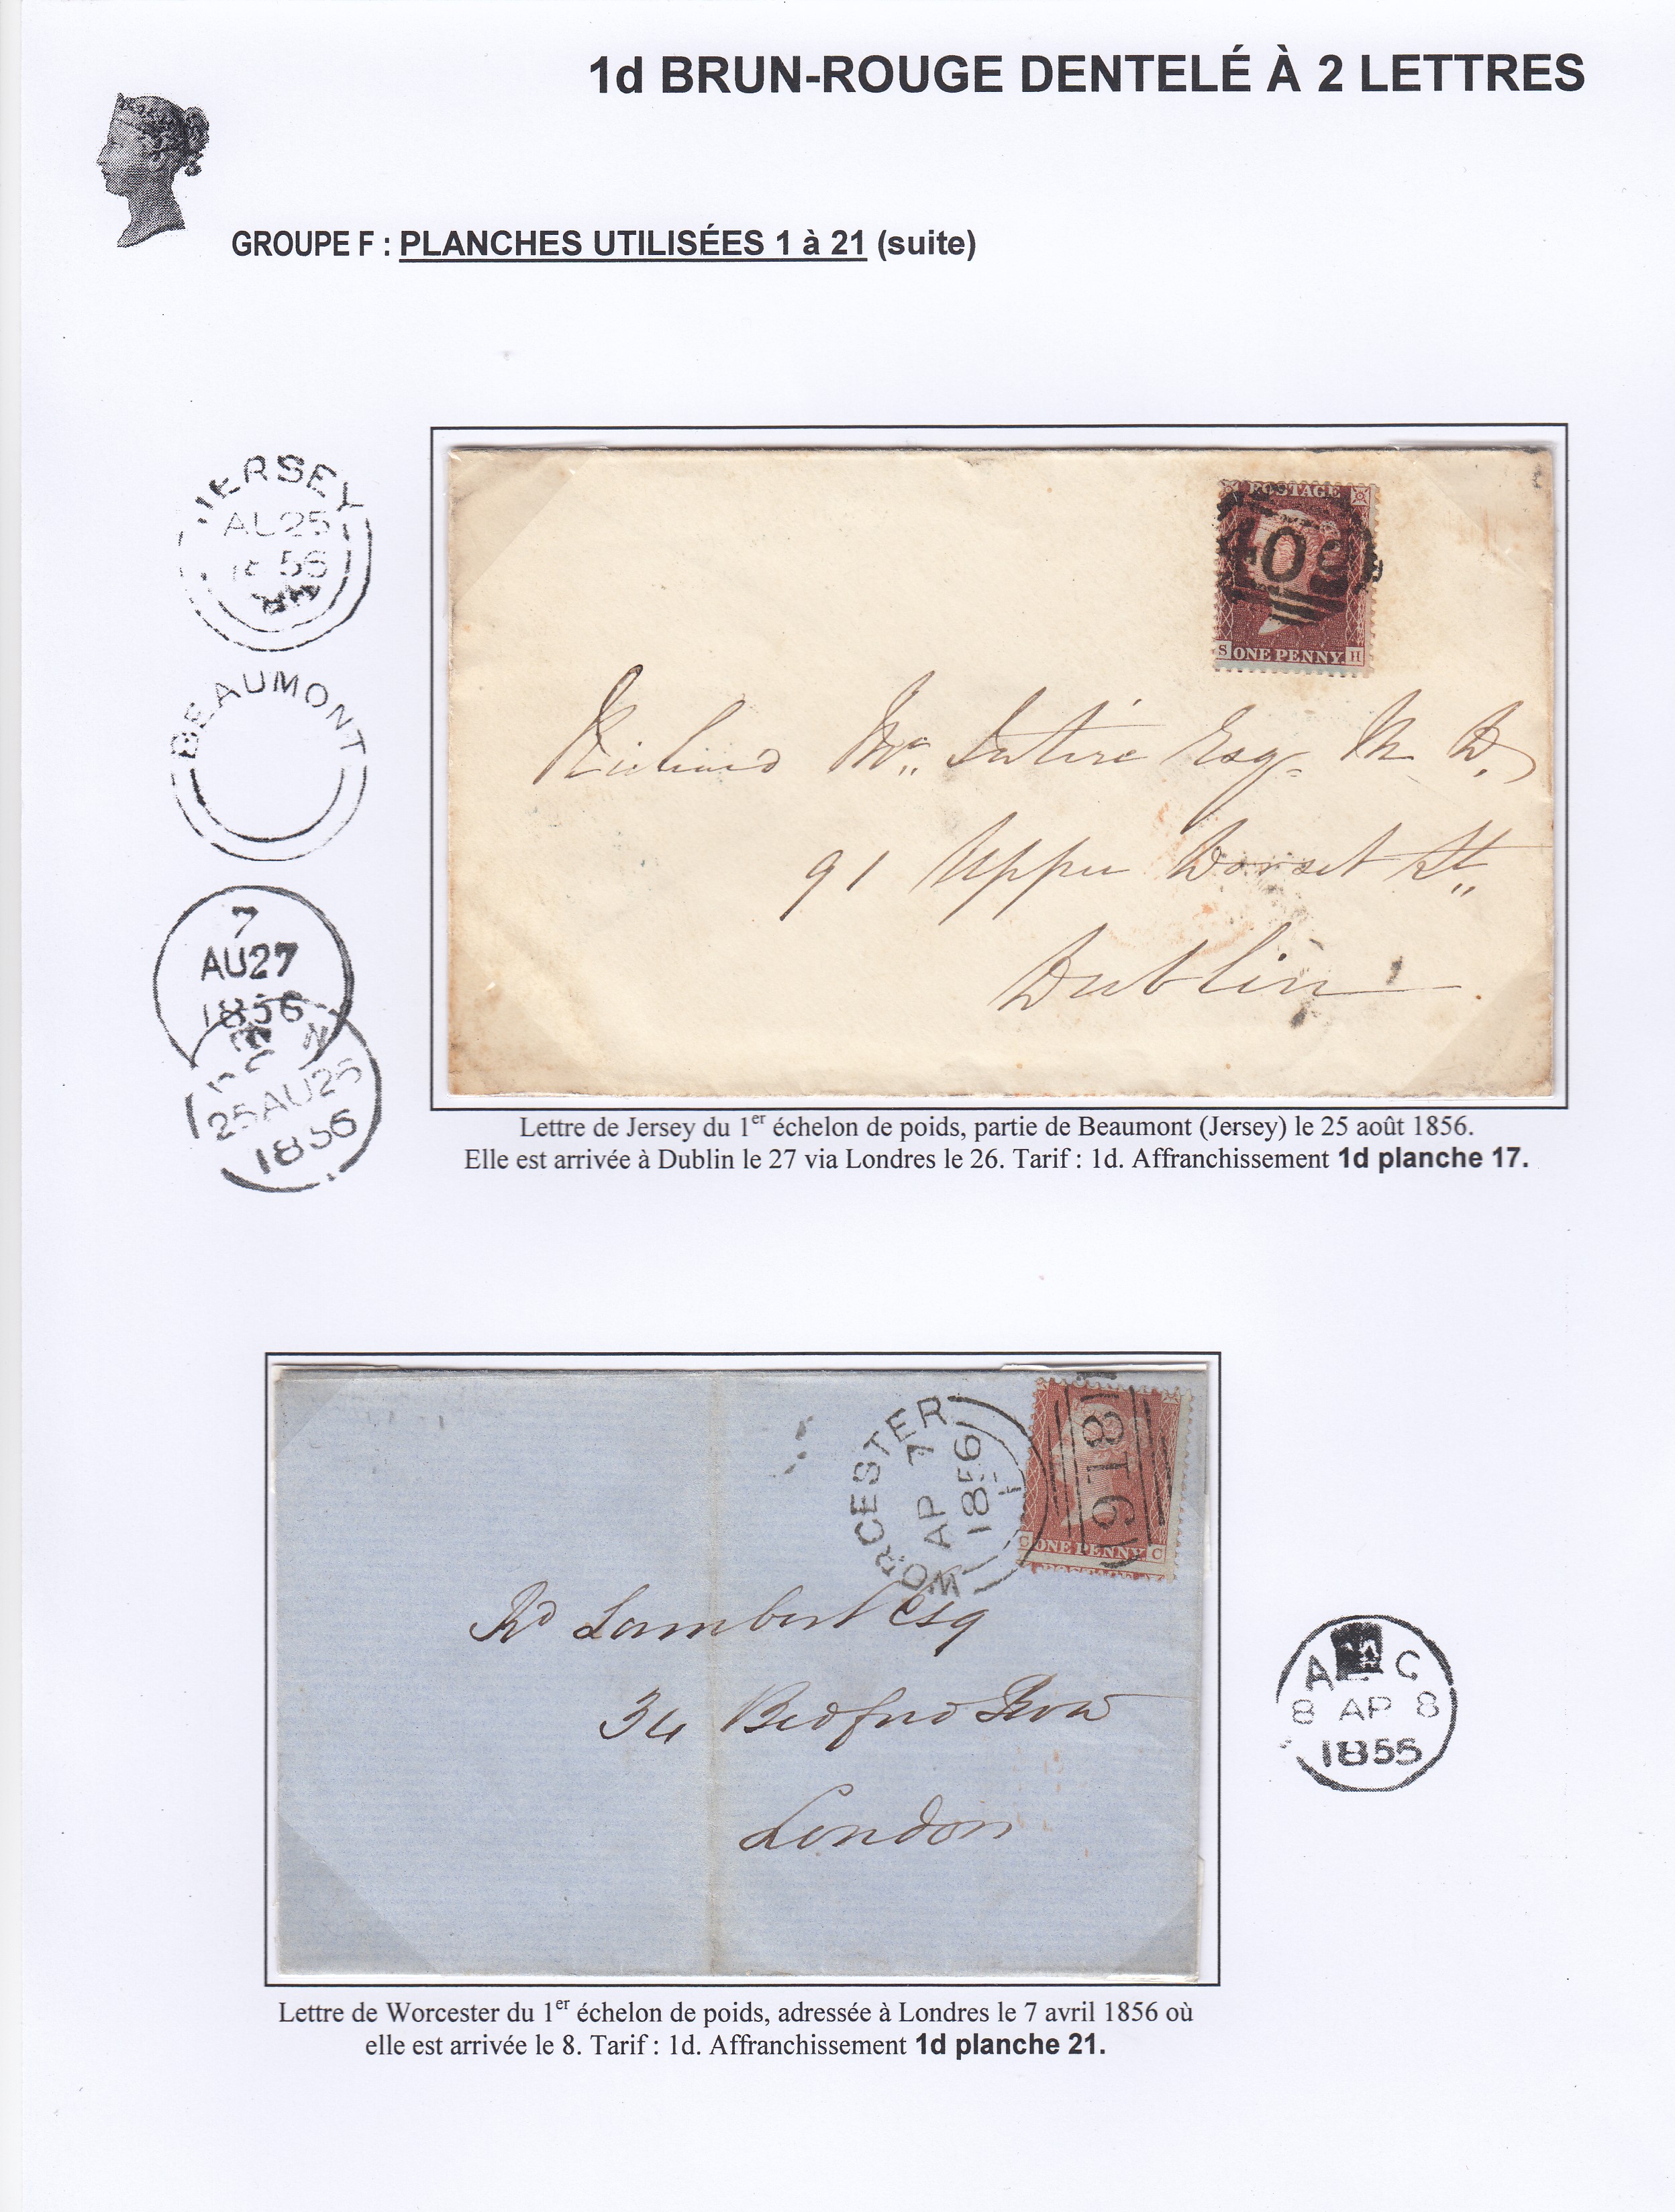 1d BRUN-ROUGE DENTELÉ À 2 LETTRES
GROUPE F : PLANCHES UTILISÉES 1 à 21 (suite)
JERSEY
AU 25
56
BEAUMONT
7
AU 27
1856
25 AU 25
1856
POSTAGE
409
S ONE PENNY H
Richard Mc. Intire Esq. M. D.
91 Upper Dorset St.
Dublin
Lettre de Jersey du 1er échelon de poids, partie de Beaumont (Jersey) le 25 août 1856.
Elle est arrivée à Dublin le 27 via Londres le 26. Tarif : 1d. Affranchissement 1d planche 17.
WORCESTER
AP 7
1856
918
ONE PENNY C
Rd Lambert Esq
34 Bedford Row
London
A C
8 AP 8
1855
Lettre de Worcester du 1er échelon de poids, adressée à Londres le 7 avril 1856 où
elle est arrivée le 8. Tarif : 1d. Affranchissement 1d planche 21.